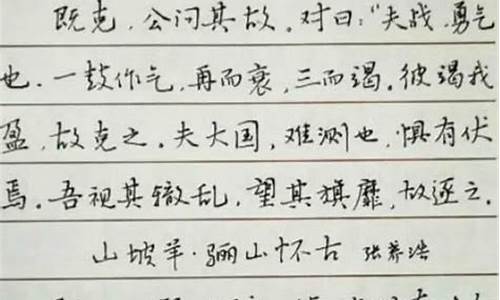 既克，公问其故。对曰："夫战，勇气
也。一鼓作气，再而衰，三而竭。彼竭我
盈，故克之。夫大国，难测也，惧有伏
焉。吾视其辙乱，望其旗靡，故逐之。
山坡羊·骊山怀古 张养浩